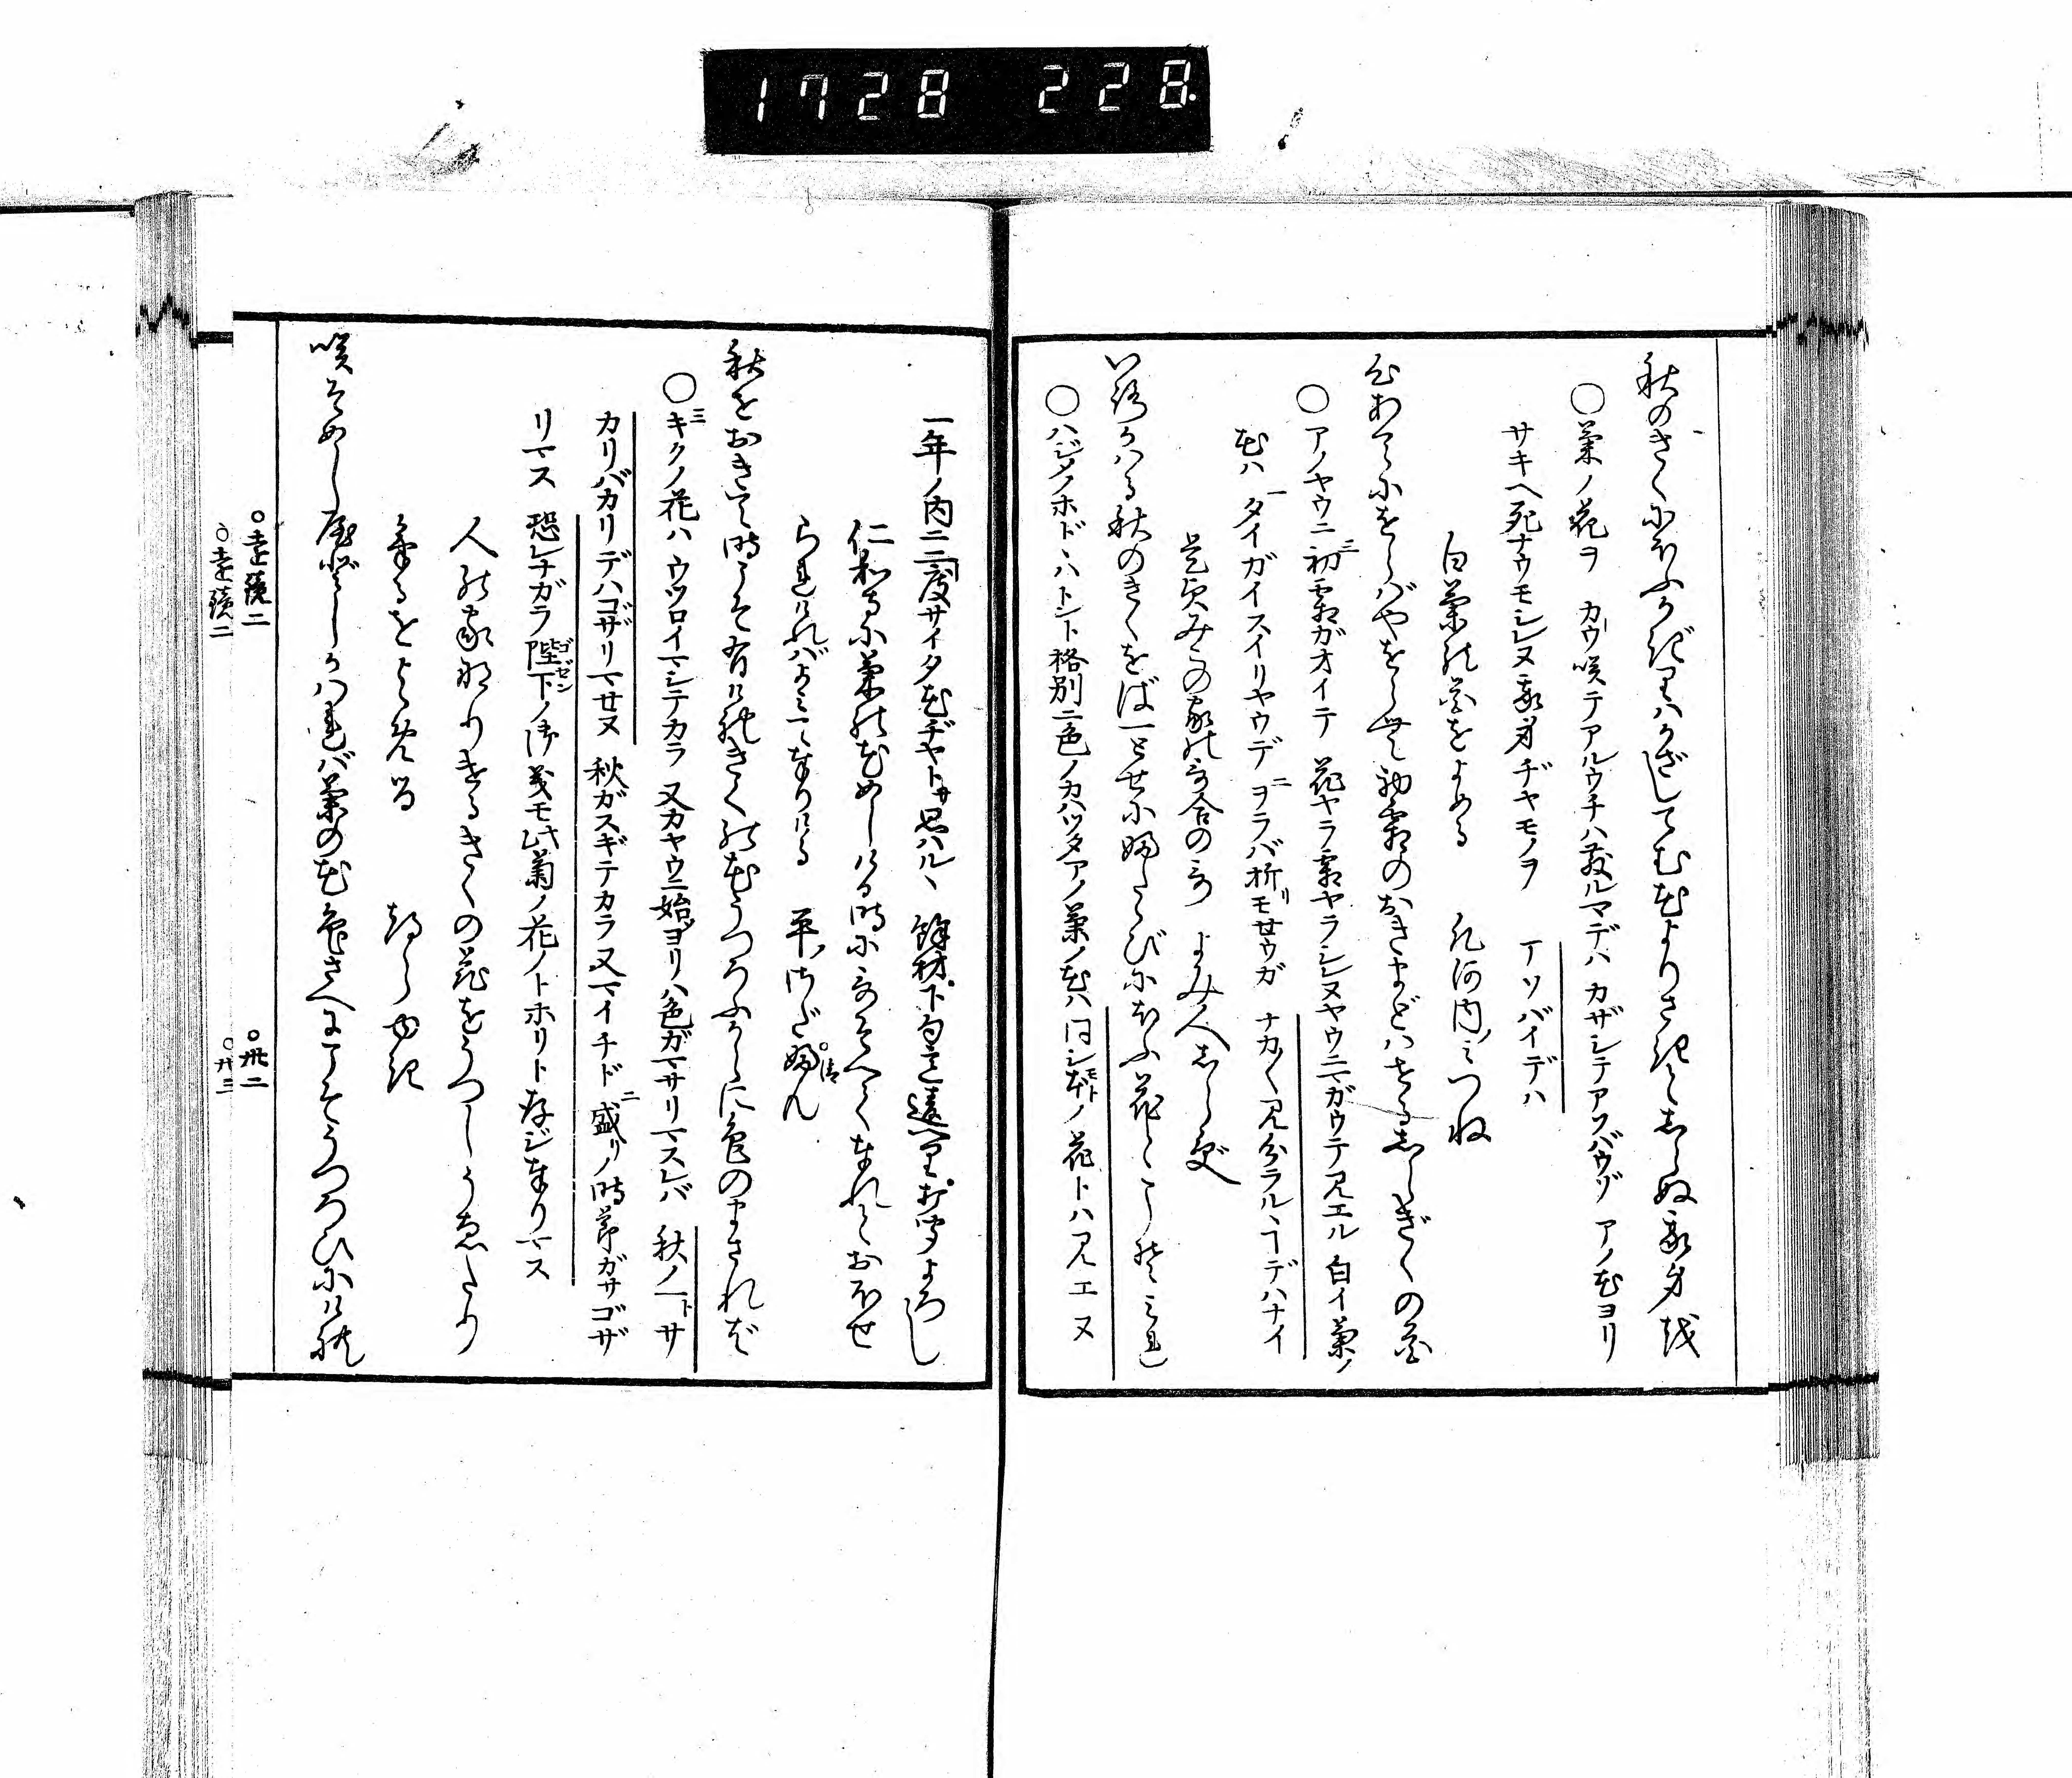 1728 228
秋のきくにほふかぎりはかざしてむ花よりさきとしらぬ我身を
○菊ノ花ヲ カウ咲テアルウチハ散ルマデハ カザシテアソバウゾ アノ花ヨリ
サキヘ死ナウモシレヌ我身ヂヤモノヲ アソバイデハ
白菊の花をよめる 凡河内ノみつね
心あてにをらばやをらむ初霜のおきまどはせるしらぎくの花
○アノヤウニ三初霜ガオイテ 花ヤラ霜ヤラシレヌヤウニマガウテ見エル 白イ菊ノ
花ハ 一タイガイスイリヤウデ 二ヲラバ折リモセウガ ナカ〱見分ラルヽヿデハナイ
是貞みこの家の哥合の哥 よみ人しらず
いろかはる秋のきくをば一とせにふたゝびにほふ花とこそみれ
○ハジメノホドヽハトント格別ニ色ノカハツタアノ菊ノ花ハ 同シ本モトノ花トハ見エヌ
一年ノ内ニ二度サイタ花ヂヤトサ思ハルヽ 餘材下句ことに打聞よろし
仁和寺に菊の花めしける時にうたそへて奉れとおほせ
られければよみて奉りける 平ノさだふん
秋をおきて時こそ有けれきくの花うつろふからに色のまされば
○三キクノ花ハ ウツロイマシテカラ 又カヤウニ始ヨリハ色ガマサリマスレバ 秋ノヿトサ
カリバカリデハゴザリマセヌ 秋ガスギテカラ又マイチド 二盛リノ時節ガサゴザ
リマス 恐レナガラ陛下ゴゼンノ御義モ此菊ノ花ノトホリト存ジ奉リマス
人の家なりけるきくの花をうつしうゑたり
けるをよめる つらゆき
咲そめし屋どしかはれば菊の花色さへにこそうつろひにけれ
○遠鏡二 ○卅二
○遠鏡二 ○卅三